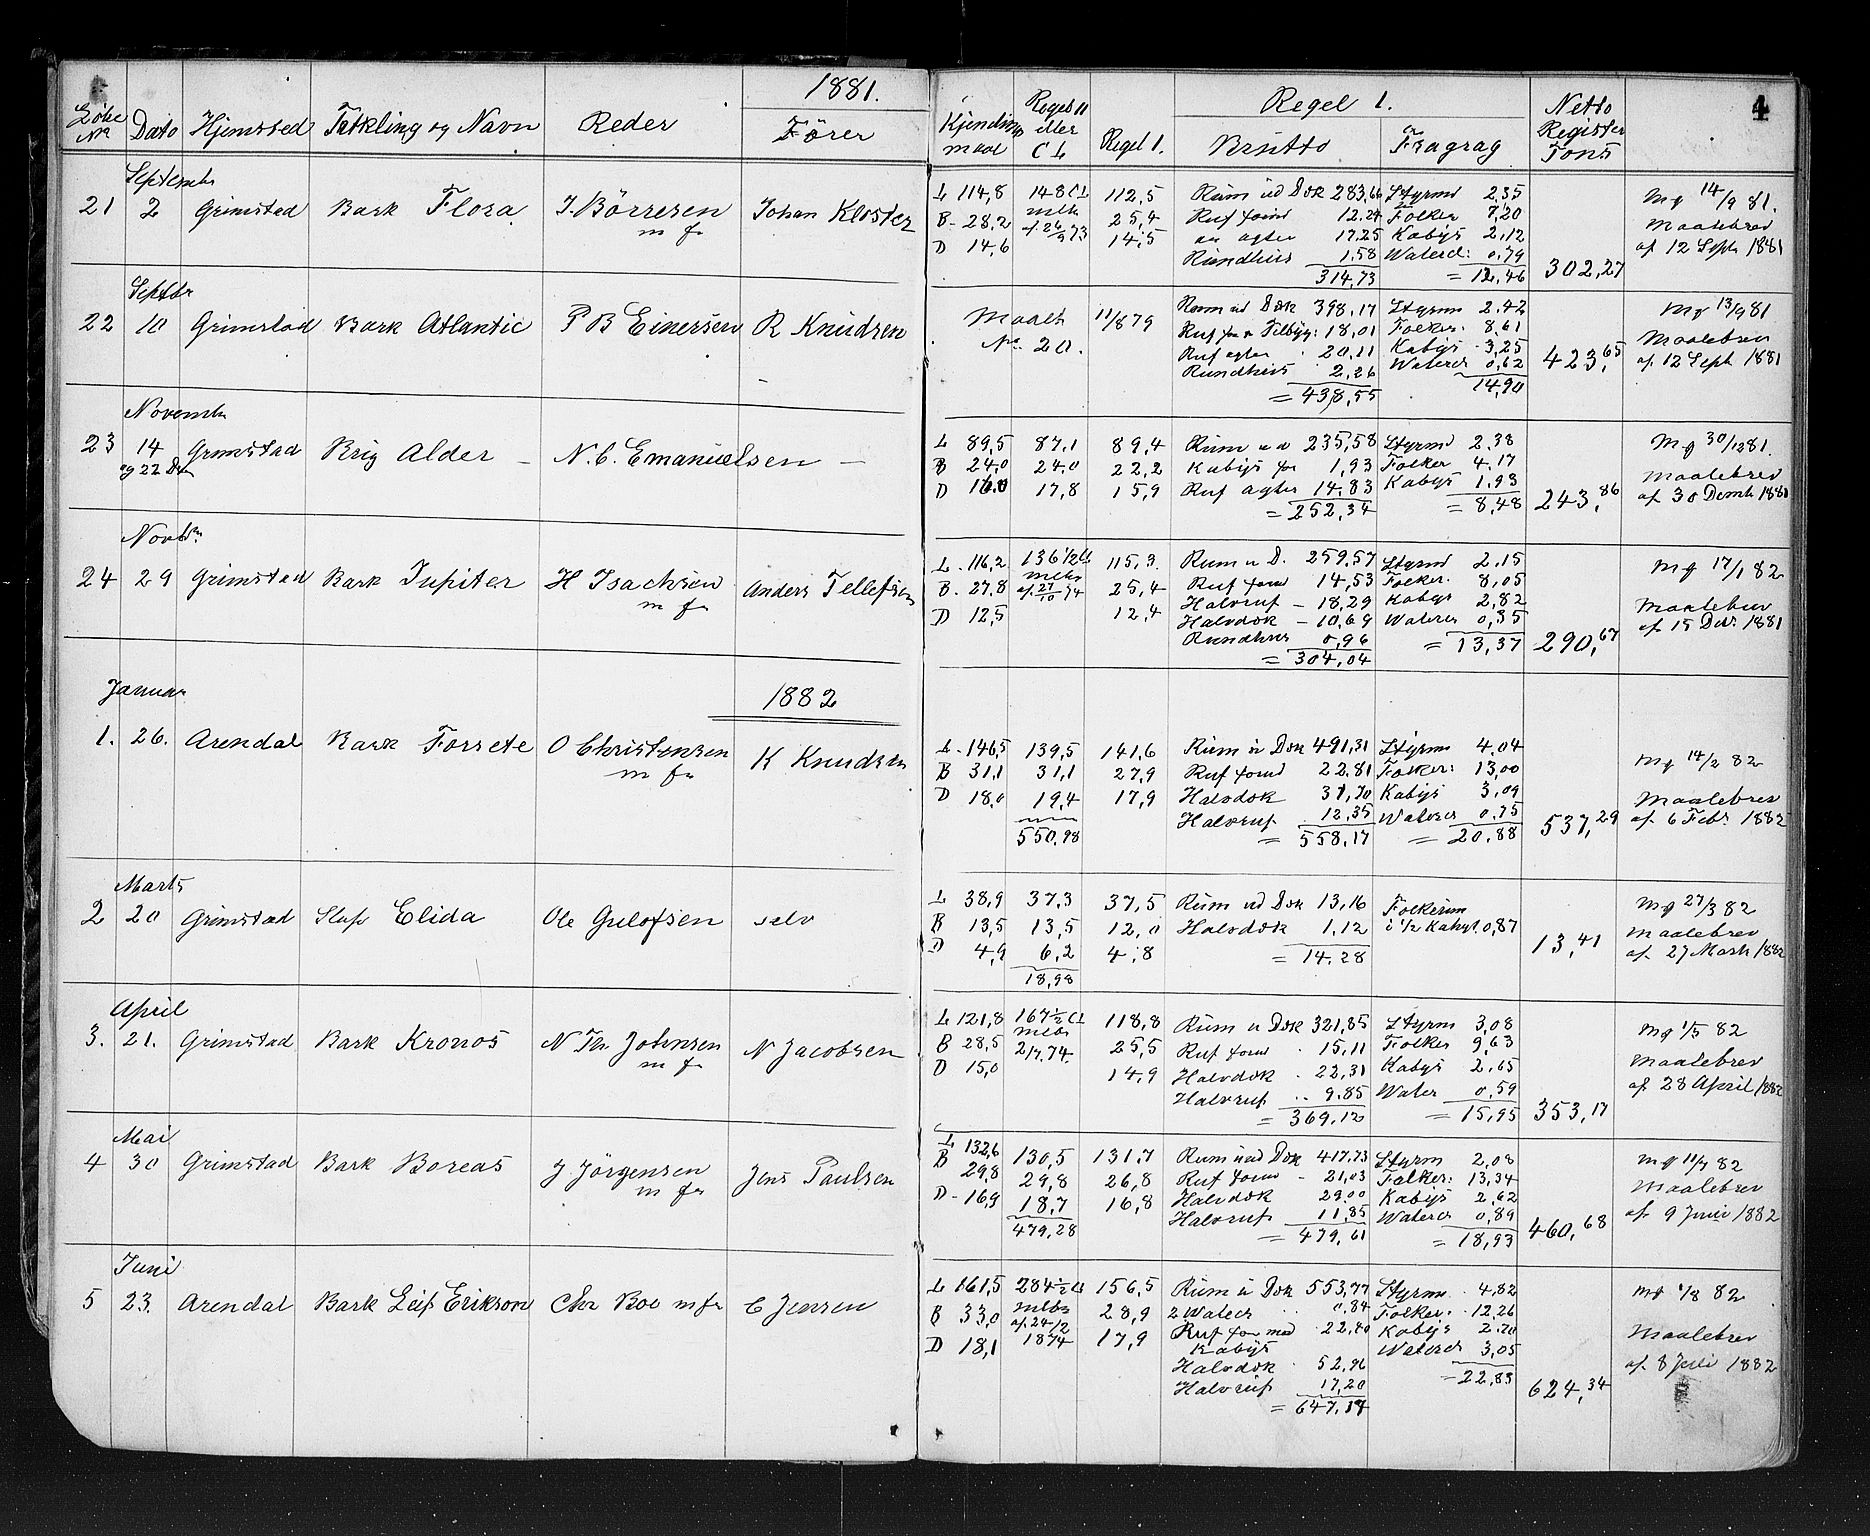 1881.
Löbe No Dato Hjemsted Takling og Navn Reder Förer
Kjendingsmaal Regel II eller CL Regel 1. Regel 1. Brutto Fragrag Netto Register Tons 4
Septembr
21 2 Grimstad Bark Flora J. Börresen m fr Johan Kloster
L 114,8 148 CL 112,5 Rum ud Dæk 283,66 Styrmd 2,35 Mg 14/9 81.
B - 28,2 mlbr af 26/9 73 25,4 Ruf forud 12.24 Folker 7,20 Maalebrev
D 14,6 14,5 agter 17.25 Kabys 2,12 af 12 Septr 1881
Rundhus 1,58 Waterc: 0,79
314,73 = 12,46 302,27
Septbr
22 10 Grimstad Bark Atlantic P B Einersen R Knudsen
Maalt 11/8 79 No 20.
Rum ud Dæk 398,17 Styrm 2.42 Mg 13/9 81
Ruf for Tilbyg: 18,01 Folker. 8,61 Maalebrev
Ruf agter 20,11 Kabys 3,25 af 12 Sept 1881
Rundhus 2,26 Waterc 0,62 423,65
= 438,55 14,90
Novembr
23 14 og 22 Dec Grimstad Brig Alder - N. C. Emanuelsen -
L 89,5 87,1 89,4 Rum ud 235,58 Styrmd 2,38 Mg 30/12 81.
B 24,0 24,0 22,2 Kabys for 1,93 Folker 4.17 Maalebrev
D 16.0 17,8 15,9 Ruf agter 14,83 Kabys 1,93 af 30 Decmb 1881
= 252,34 = 8,48 243,86
Novbr
24 29 Grimstad Bark Jupiter H Isachsen m fr Anders Tellefsen
L. 116,2 136 1/2 CL 115,3 Rum u D. 259,57 Styrmd 2,15 Mg 17/1 82
B - 27,8 mlbr af 27/10 74 25,4 Ruf forud 14,53 Folker. 8,05
D 12,5 12,4 Halvruf - 18,29 Kabys 2,82 Maalebrev
Halvdæk - 10,69 Waterc 0,35 af 15 Decr 1881
Rundhus 0,96 = 13,37 290,67
= 304,04
1882
Januar
1. 26. Arendal Bark Forsete O Christensen m fr K Knudsen
L - 146,5 139,5 141,6 Rum u Dæk 491,31 Styrm 4.04 Mg 14/2 82
B 31,1 31,1 27,9 Ruf forud 22.81 Folker: 13,00
D 18,0 19,4 17,9 Halvdæk 31,70 Kabys 3,09 Maalebrev
550,98 Halvruf 12,35 Waterc 0,75 af 6 Febr. 1882
= 558,17 = 20,88 537,29
Marts
2 20 Grimstad Slup Elida Ole Gulofsen selv
L 38,9 37,3 37,5 Rum ud Dæk 13,16 Folkerum Mg 27/3 82
B 13,5 13,5 12,0 Halvdæk 1,12 i 1/2 Kahyt 0,87 Maalebrev
D 4,9 6,2 4,8 = 14,28 13,41 af 27 Marts 1882
18,98
April
3. 21. Grimstad Bark Kronos N Th Johnsen m fr N Jacobsen
L 121,8 167 1/2 CL 118,8 Rum u Dæk 321,85 Styrm 3,08 Mg 1/5 82
B 28,5 mlbr 2/7.74. 25,5 Ruf forud 15,11 Folker 9,63 Maalebrev
D 15,0 14,9 Halvdæk 22,31 Kabys 2,65 af 28 April 1882
Halvruf 9,85 Water 0,59
= 369,12 = 15,95 353,17
Mai
4 30 Grimstad Bark Boreas J. Jörgensen m fr Jens Paulsen
L 132,6 130,5 131,7 Rum und Dæk 417,73 Styrm 2,08 Mg 11/7 82
B 29,8 29,8 26,8 Ruf forud - 21,03 Folker: 13,34 Maalebrev
D - 16,9 18,7 16,8 Halvdæk 29.00 Kabys 2,62 af 9 Juni 1882
479,28 Halvruf 11,85 Waterc 0,89
= 479,61 = 18,93 460,68
Juni
5 23. Arendal Bark Leif Erikson Chr Boe m fr C Jensen
L 161,5 284 1/2 CL 156,5 Rum u Dæk 553,77 Styrm. 4,82 Mg 1/8 82
B 33,0 mlbr af 24/2 1874 28,9 2 Waterc 0,84 Folker. 12,26
D 18,1 17,9 Ruf for med Kabys 22,40 Kabys 2.70 Maalebrev
Halvdæk 52,96 Waterc 3,05 af 8 Juli 1882
Halvruf 17,20 = 22,83 624,34
= 647,17